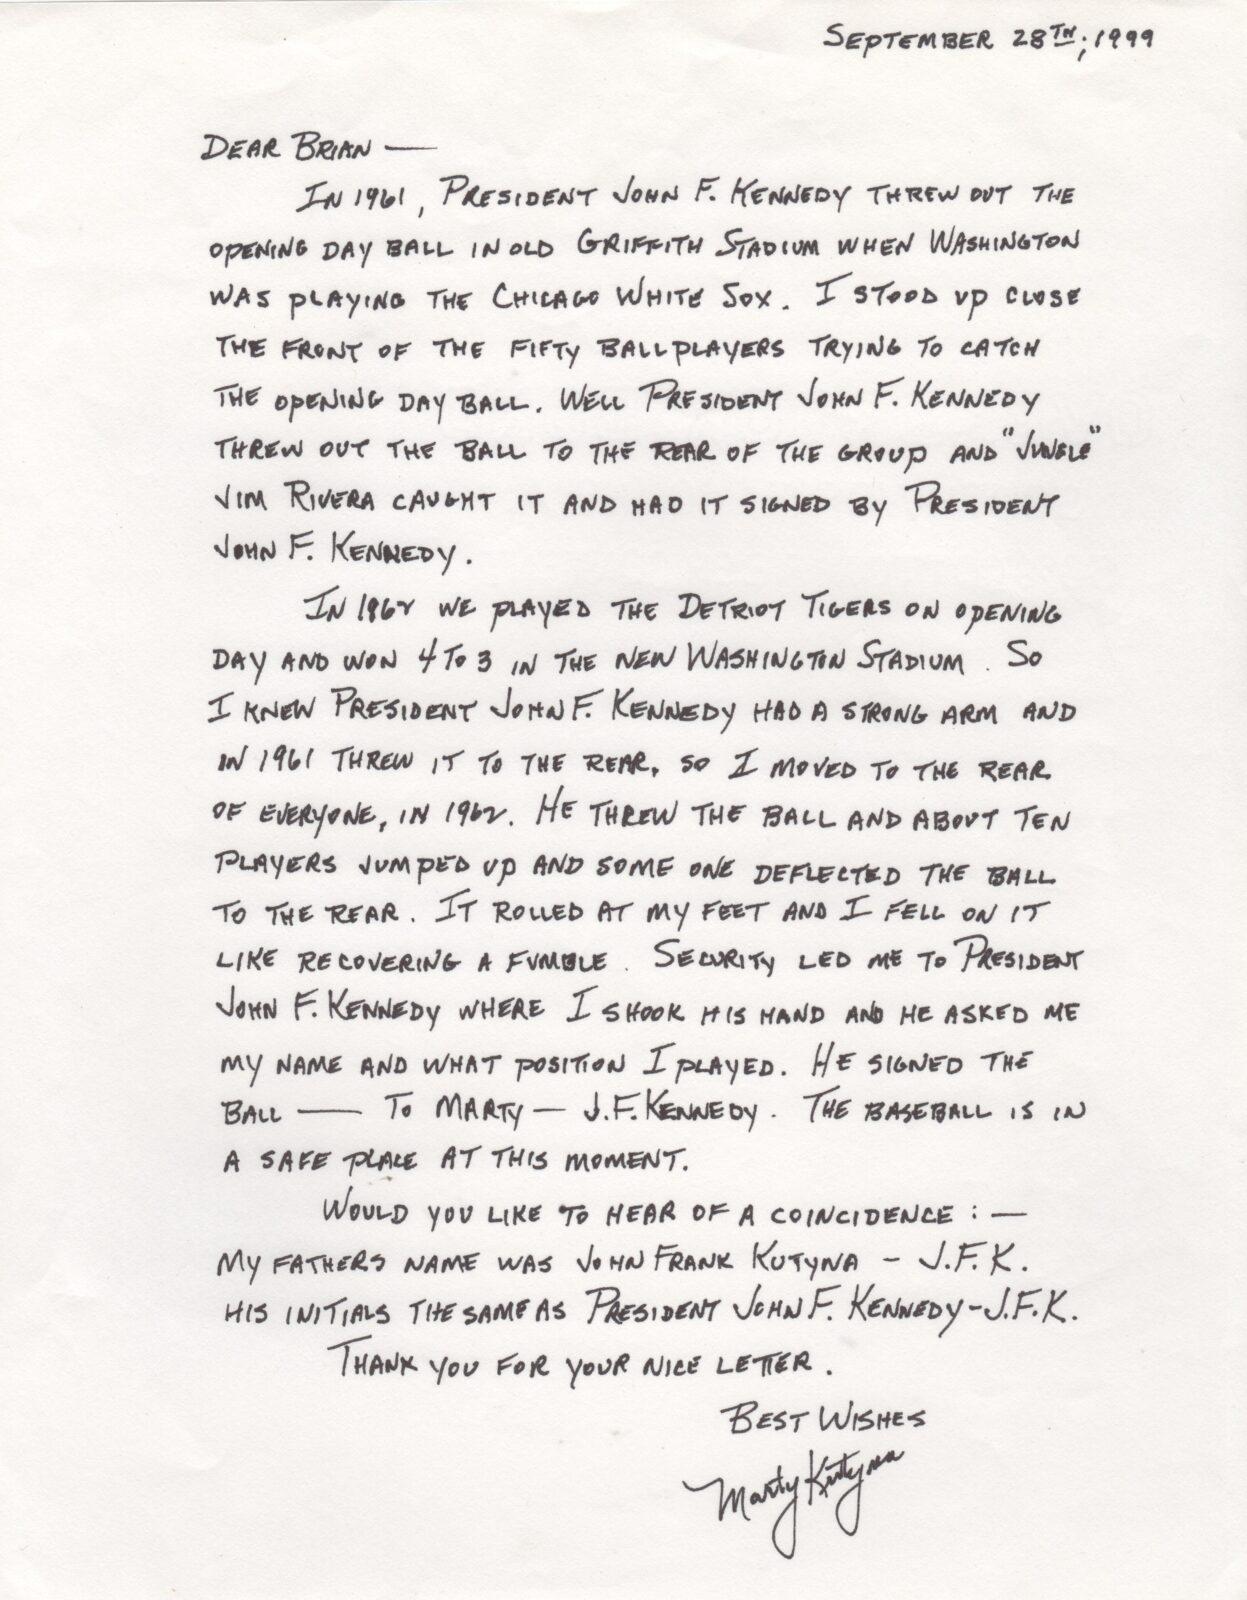 SEPTEMBER 28TH, 1999
DEAR BRIAN —
IN 1961, PRESIDENT JOHN F. KENNEDY THREW OUT THE
OPENING DAY BALL IN OLD GRIFFITH STADIUM WHEN WASHINGTON
WAS PLAYING THE CHICAGO WHITE SOX. I STOOD UP CLOSE
THE FRONT OF THE FIFTY BALLPLAYERS TRYING TO CATCH
THE OPENING DAY BALL. WELL PRESIDENT JOHN F. KENNEDY
THREW OUT THE BALL TO THE REAR OF THE GROUP AND "JUNGLE"
JIM RIVERA CAUGHT IT AND HAD IT SIGNED BY PRESIDENT
JOHN F. KENNEDY.
IN 1962 WE PLAYED THE DETRIOT TIGERS ON OPENING
DAY AND WON 4 TO 3 IN THE NEW WASHINGTON STADIUM. SO
I KNEW PRESIDENT JOHN F. KENNEDY HAD A STRONG ARM AND
IN 1961 THREW IT TO THE REAR, SO I MOVED TO THE REAR
OF EVERYONE, IN 1962. HE THREW THE BALL AND ABOUT TEN
PLAYERS JUMPED UP AND SOME ONE DEFLECTED THE BALL
TO THE REAR. IT ROLLED AT MY FEET AND I FELL ON IT
LIKE RECOVERING A FUMBLE. SECURITY LED ME TO PRESIDENT
JOHN F. KENNEDY WHERE I SHOOK HIS HAND AND HE ASKED ME
MY NAME AND WHAT POSITION I PLAYED. HE SIGNED THE
BALL — TO MARTY — J.F. KENNEDY. THE BASEBALL IS IN
A SAFE PLACE AT THIS MOMENT.
WOULD YOU LIKE TO HEAR OF A COINCIDENCE : —
MY FATHERS NAME WAS JOHN FRANK KUTYNA - J.F.K.
HIS INITIALS THE SAME AS PRESIDENT JOHN F. KENNEDY - J.F.K.
THANK YOU FOR YOUR NICE LETTER.
BEST WISHES
Marty Kutyna